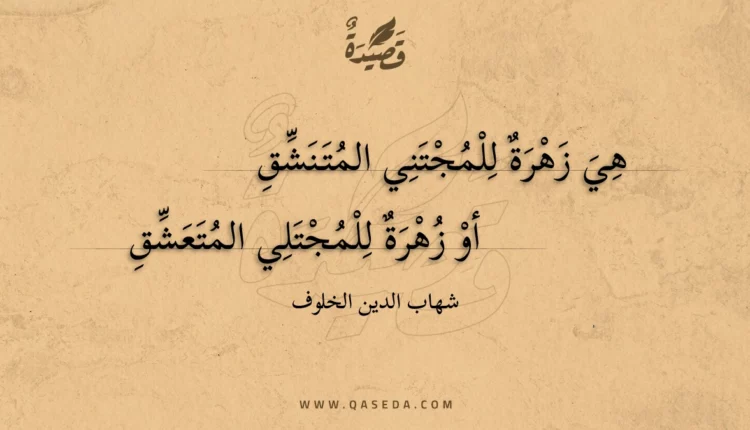 قَصِيْدَةٌ
هِيَ زَهْرَةٌ لِلْمُجْتَنِي المُتَنَشِّقِ
أوْ زُهْرَةٌ لِلْمُجْتَلِي المُتَعَشِّقِ
شهاب الدين الخلوف
WWW.QASEDA.COM